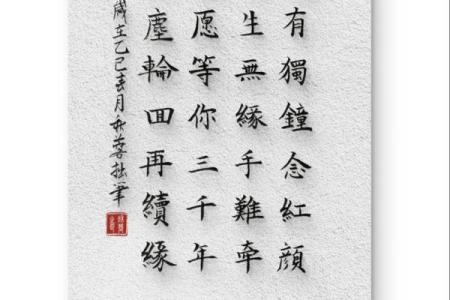 有獨鐘念紅顔
生無緣手難牽
愿等你三千年
塵輪回再續緣
歲在乙巳春月拙筆